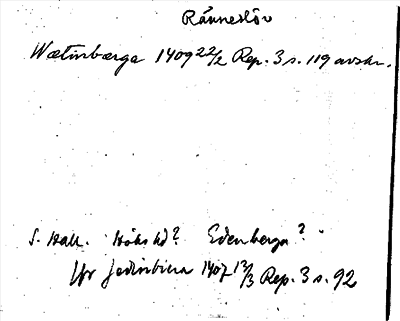 Ränneslöv
Wætinbærga 1409 22/2 Rep. 3 s. 119 avskr.
S. Hall. Höks hd? Edenberga?
Jfr Jedinbiera 1407 12/3 Rep. 3 s. 92